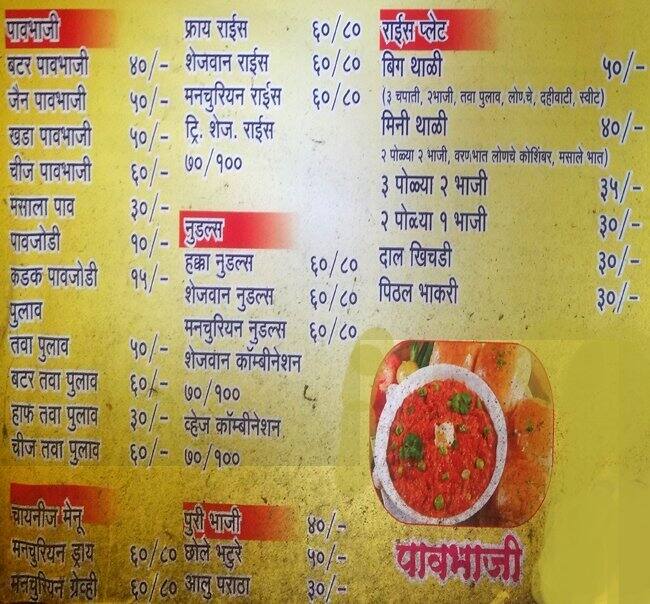 पावभाजी
बटर पावभाजी ४०/-
जैन पावभाजी ५०/-
खडा पावभाजी ५०/-
चीज पावभाजी ६०/-
मसाला पाव ३०/-
पावजोडी १०/-
कडक पावजोडी १५/-
पुलाव
तवा पुलाव ५०/-
बटर तवा पुलाव ६०/-
हाफ तवा पुलाव ३०/-
चीज तवा पुलाव ६०/-
चायनीज मेनू
मनचुरियन ड्राय ६०/८०
मनचुरियन ग्रेव्ही ६०/८०
फ्राय राईस ६०/८०
शेजवान राईस ६०/८०
मनचुरियन राईस ६०/८०
ट्रि. शेज. राईस
७०/१००
नुडल्स
हक्का नुडल्स ६०/८०
शेजवान नुडल्स ६०/८०
मनचुरियन नुडल्स ६०/८०
शेजवान कॉम्बीनेशन
७०/१००
व्हेज कॉम्बीनेशन
७०/१००
पुरी भाजी ४०/-
छोले भटुरे ५०/-
आलु पराठा ३०/-
राईस प्लेट
बिग थाळी ५०/-
(३ चपाती, २भाजी, तवा पुलाव, लोण.चे, दहीवाटी, स्वीट)
मिनी थाळी ४०/-
२ पोळ्या २ भाजी, वरण.भात लोणचे कोशिंबर, मसाले भात)
३ पोळ्या २ भाजी ३५/-
२ पोळ्या १ भाजी ३०/-
दाल खिचडी ३०/-
पिठल भाकरी ३०/-
पावभाजी